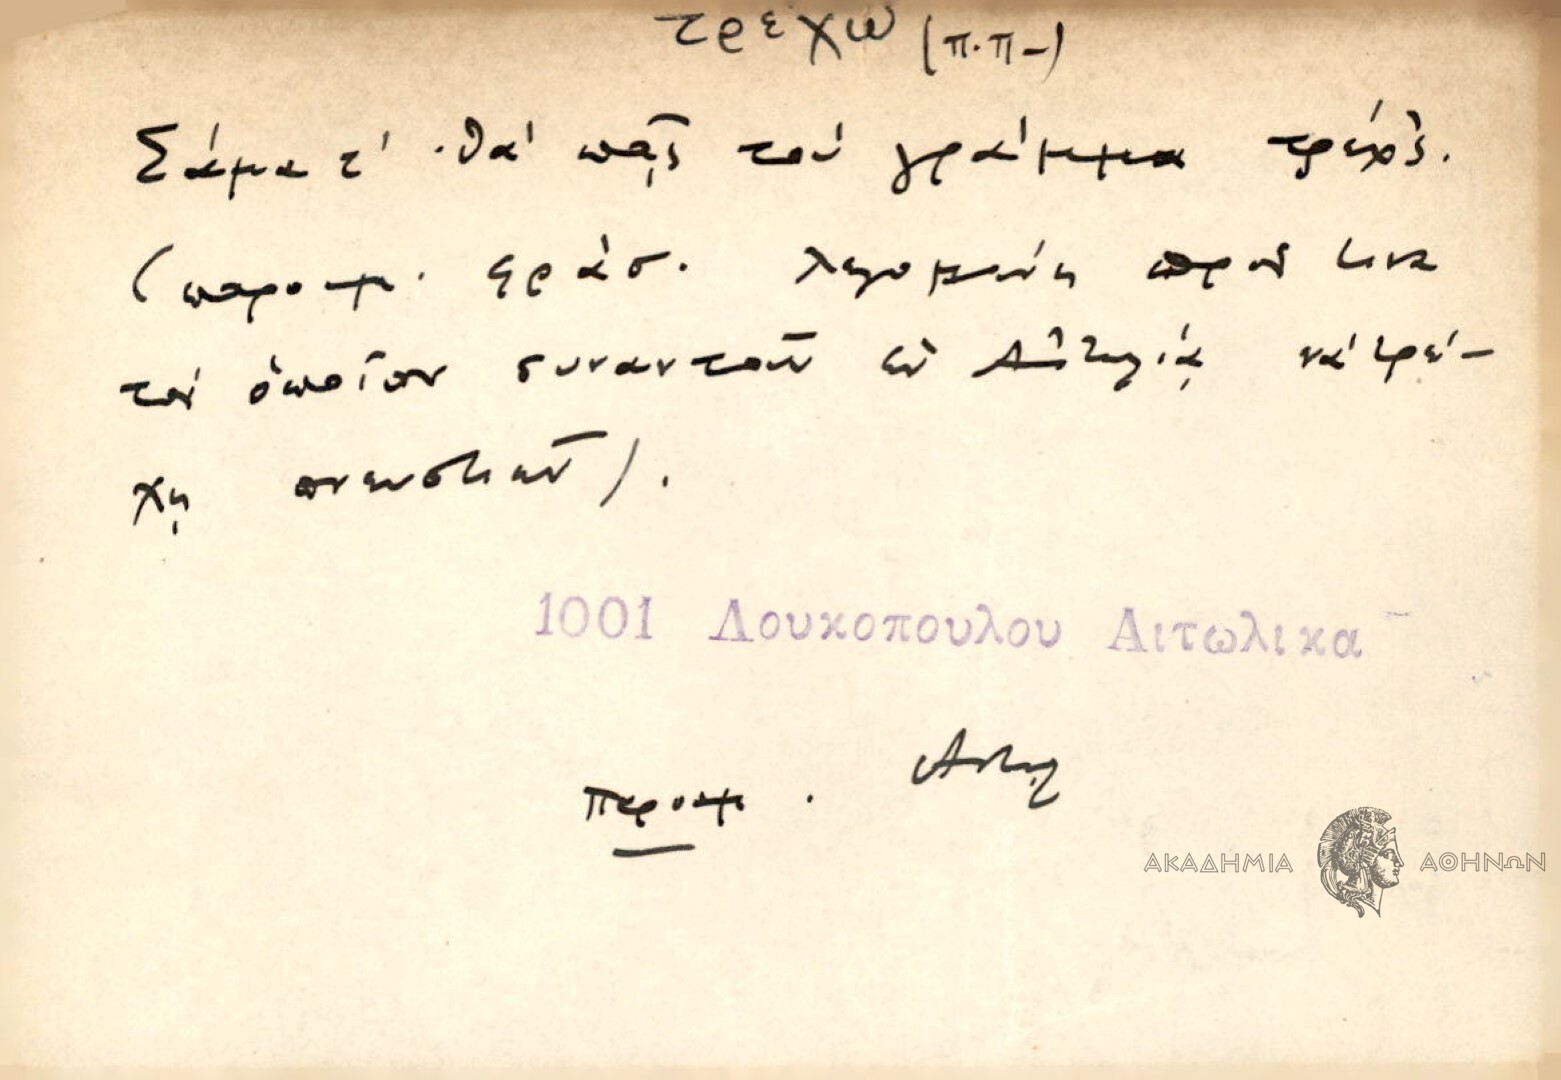 τρέχω (π.π-)
Σάματ' θα πᾷς τοὐ γράμμα τρέχ'ς.
(παροιμ. φράσ. λεγομένη πρὸς τινα
τὸν ὁποῖον συναντοῦν ἐν Αἰτωλίᾳ νὰ τρέ-
χῃ πνευστιῶν).
1001 Λουκοπουλου Αιτωλικα
παροιμ. Αιτωλ
ΑΚΑΔΗΜΙΑ ΑΘΗΝΩΝ